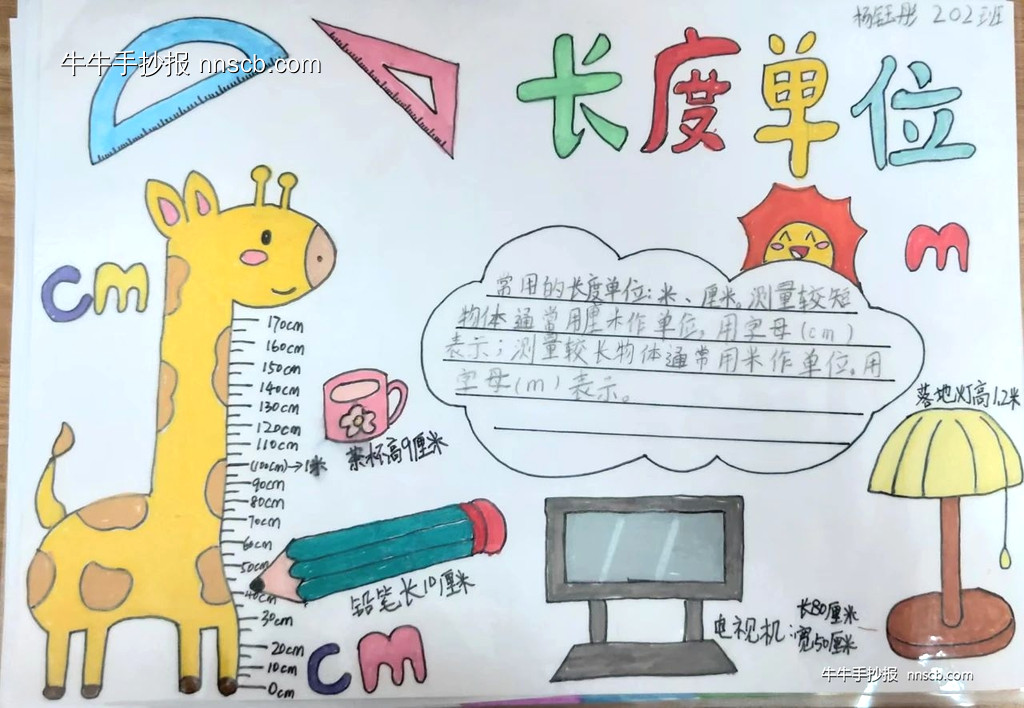 杨钰彤 202班
牛牛手抄报 nnscb.com
长度单位
m
cm
常用的长度单位：米、厘米。测量较短
物体通常用厘米作单位，用字母（cm）
表示；测量较长物体通常用米作单位。用
字母（m）表示。
170cm
160cm
150cm
140cm
130cm
120cm
110cm
(100cm)→1米
90cm
80cm
70cm
60cm
50cm
40cm
30cm
20cm
10cm
0cm
茶杯高9厘米
落地灯高1.2米
铅笔长10厘米
电视机：长80厘米
宽50厘米
cm
牛牛手抄报 nnscb.com